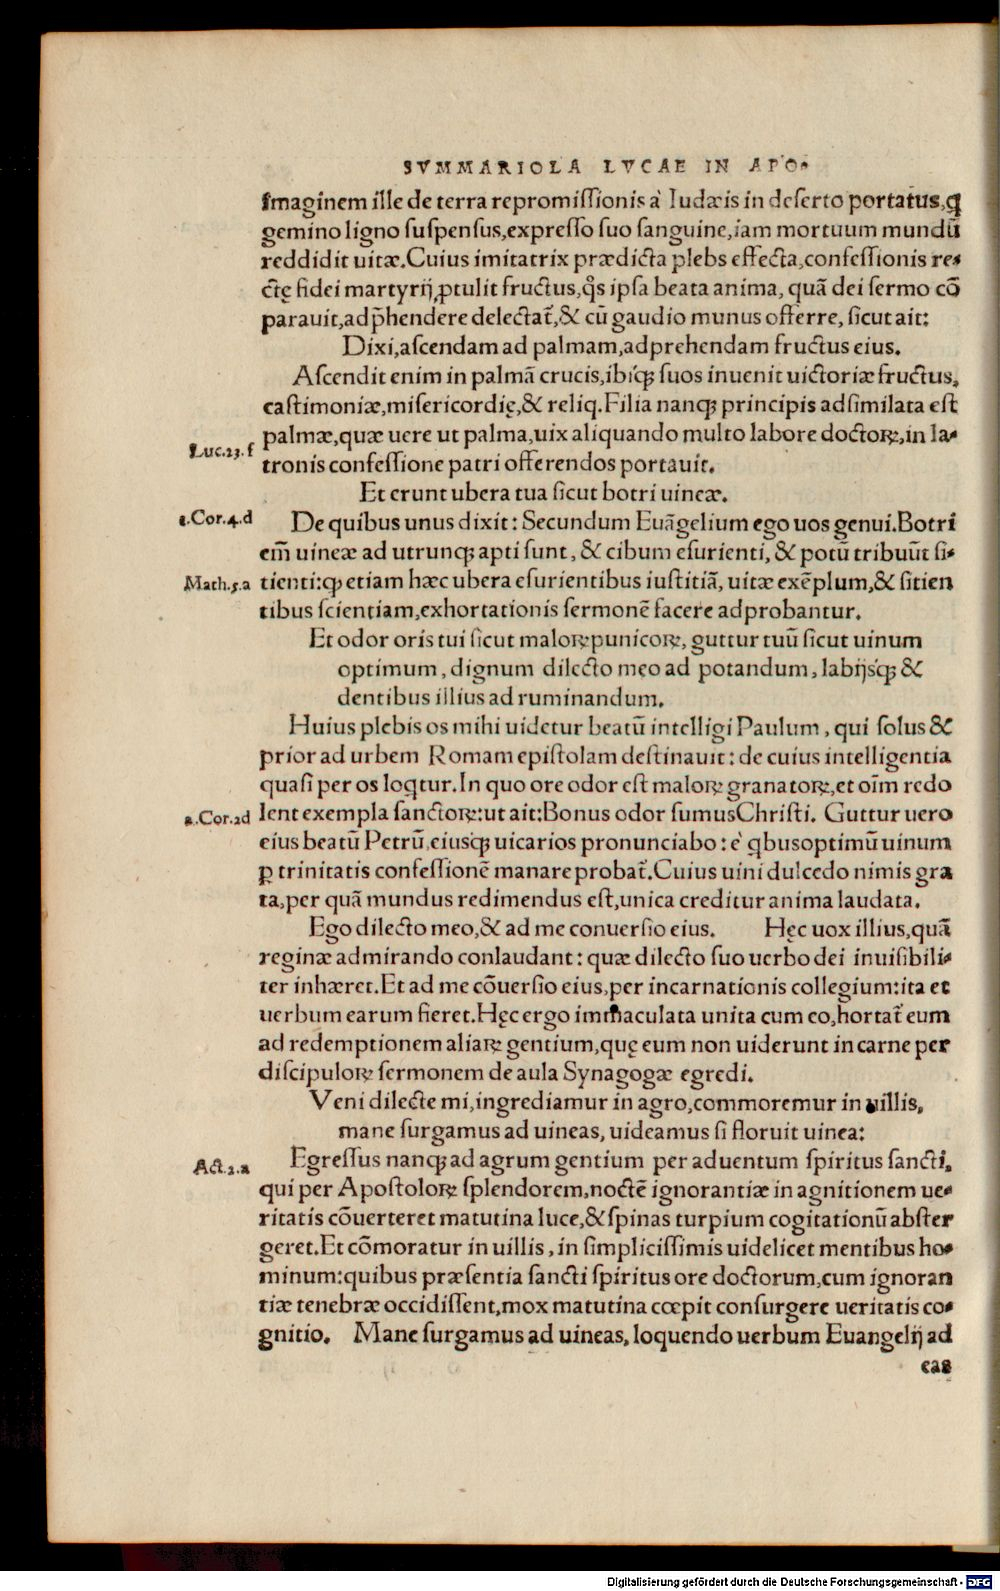 SVMMARIOLA LVCAE IN APO-
imaginem ille de terra repromiſſionis à Iudæis in deſerto portatus, ꝗ
gemino ligno ſuſpenſus, expreſſo ſuo ſanguine, iam mortuum mundũ
reddidit uitæ. Cuius imitatrix prædicta plebs effecta, confeſſionis re-
ctę fidei martyrij ꝓtulit fructus, q̃s ipſa beata anima, quã dei ſermo cõ
parauit, ad p̃hendere delectat̃, & cũ gaudio munus offerre, ſicut ait:
Dixi, aſcendam ad palmam, adprehendam fructus eius.
Aſcendit enim in palmã crucis, ibiq́ꝫ ſuos inuenit uictoriæ fructus,
caſtimoniæ, miſericordię, & reliq. Filia nanqꝫ principis adſimilata eſt
palmæ, quæ uere ut palma, uix aliquando multo labore doctoꝝ, in la-
Luc.23.f
tronis confeſſione patri offerendos portauit.
Et erunt ubera tua ſicut botri uineæ.
1.Cor.4.d
De quibus unus dixit: Secundum Euãgelium ego uos genui. Botri
em̃ uineæ ad utrunqꝫ apti ſunt, & cibum eſurienti, & potũ tribuũt ſi-
Math.5.a
tienti: qꝫ etiam hæc ubera eſurientibus iuſtitiã, uitæ exẽplum, & ſitien
tibus ſcientiam, exhortationis ſermonẽ facere adprobantur.
Et odor oris tui ſicut maloꝝ punicoꝝ, guttur tuũ ſicut uinum
optimum, dignum dilecto meo ad potandum, labijsq́ꝫ &
dentibus illius ad ruminandum.
Huius plebis os mihi uidetur beatũ intelligi Paulum, qui ſolus &
prior ad urbem Romam epiſtolam deſtinauit: de cuius intelligentia
quaſi per os loꝗtur. In quo ore odor eſt maloꝝ granatoꝝ, et oĩm redo
2.Cor.2d
lent exempla ſanctoꝝ: ut ait: Bonus odor ſumus Chriſti. Guttur uero
eius beatũ Petrũ, eiusqꝫ uicarios pronunciabo: è ꝗbus optimũ uinum
ꝑ trinitatis confeſſionẽ manare probat̃. Cuius uini dulcedo nimis gra
ta, per quã mundus redimendus eſt, unica creditur anima laudata.
Ego dilecto meo, & ad me conuerſio eius. Hęc uox illius, quã
reginæ admirando conlaudant: quæ dilecto ſuo uerbo dei inuiſibili-
ter inhæret. Et ad me cõuerſio eius, per incarnationis collegium: ita et
uerbum earum fieret. Hęc ergo immaculata unita cum eo, hortat̃ eum
ad redemptionem aliaꝝ gentium, quę eum non uiderunt in carne per
diſcipuloꝝ ſermonem de aula Synagogæ egredi.
Veni dilecte mi, ingrediamur in agro, commoremur in uillis,
mane ſurgamus ad uineas, uideamus ſi floruit uinea:
Act.2.a
Egreſſus nanqꝫ ad agrum gentium per aduentum ſpiritus ſancti,
qui per Apoſtoloꝝ ſplendorem, noctẽ ignorantiæ in agnitionem ue-
ritatis cõuerteret matutina luce, & ſpinas turpium cogitationũ abſter
geret. Et cõmoratur in uillis, in ſimpliciſſimis uidelicet mentibus ho-
minum: quibus præſentia ſancti ſpiritus ore doctorum, cum ignoran
tiæ tenebræ occidiſſent, mox matutina cœpit conſurgere ueritatis co-
gnitio. Mane ſurgamus ad uineas, loquendo uerbum Euangelij ad
eas
Digitalisierung gefördert durch die Deutsche Forschungsgemeinschaft - DFG